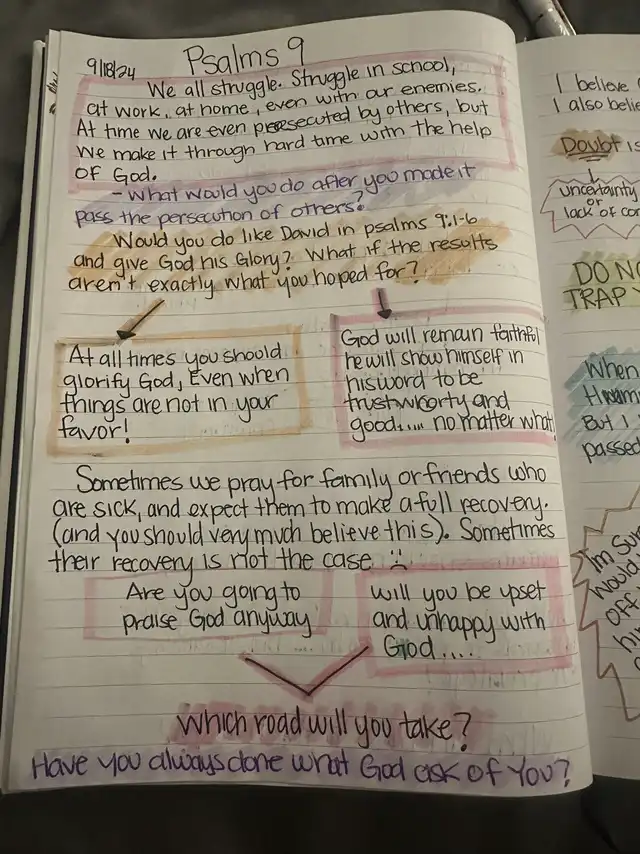 9/18/24 Psalms 9
We all struggle. Struggle in school,
at work, at home, even with our enemies.
At time we are even persecuted by others, but
we make it through hard time with the help
of God.
- What would you do after you made it
pass the persecution of others?
Would you do like David in psalms 9:1-6
and give God his Glory? What if the results
aren't exactly what you hoped for?
At all times you should
glorify God, Even when
things are not in your
favor!
God will remain faithful
he will show himself in
his word to be
trustworty and
good..... no matter what
Sometimes we pray for family or friends who
are sick, and expect them to make a full recovery.
(and you should very much believe this). Sometimes
their recovery is not the case
Are you going to
praise God anyway
will you be upset
and unhappy with
God....
Which road will you take?
Have you always done what God ask of You?
I believe
I also belie
Doubt is
uncertainty
or
lack of co
DO NO
TRAP Y
When
But I
passed
Im Su
Would
off
hi